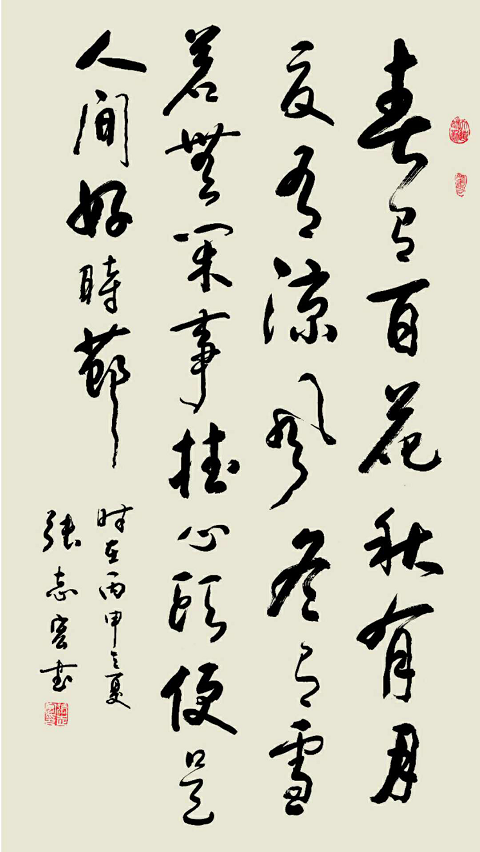 春有百花秋有月
夏有涼風冬有雪
若無閑事掛心頭便是
人间好時節
时在丙申之夏
張志宏书